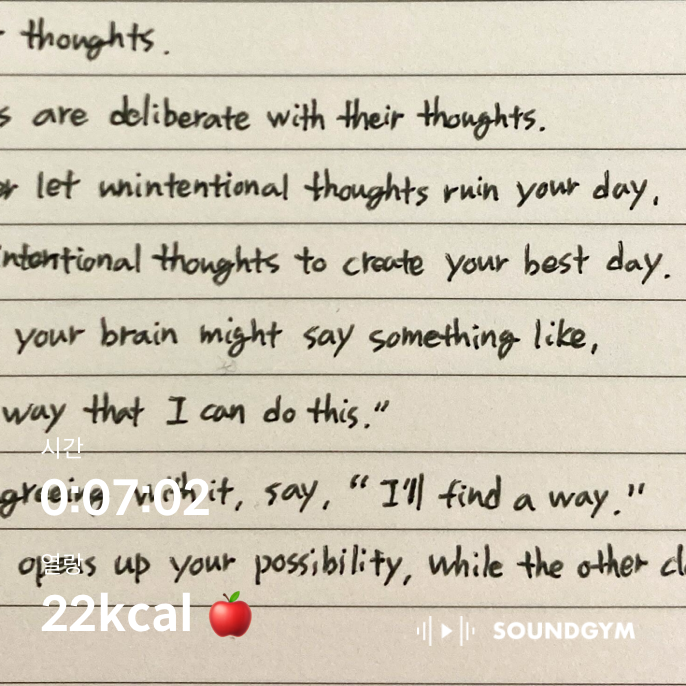 thoughts.
s are deliberate with their thoughts.
let unintentional thoughts ruin your day,
intentional thoughts to create your best day.
your brain might say something like,
way that I can do this."
시간
agreeing with it, say, "I'll find a way."
0:07:02
열량
opens up your possibility, while the other
22kcal
SOUNDGYM